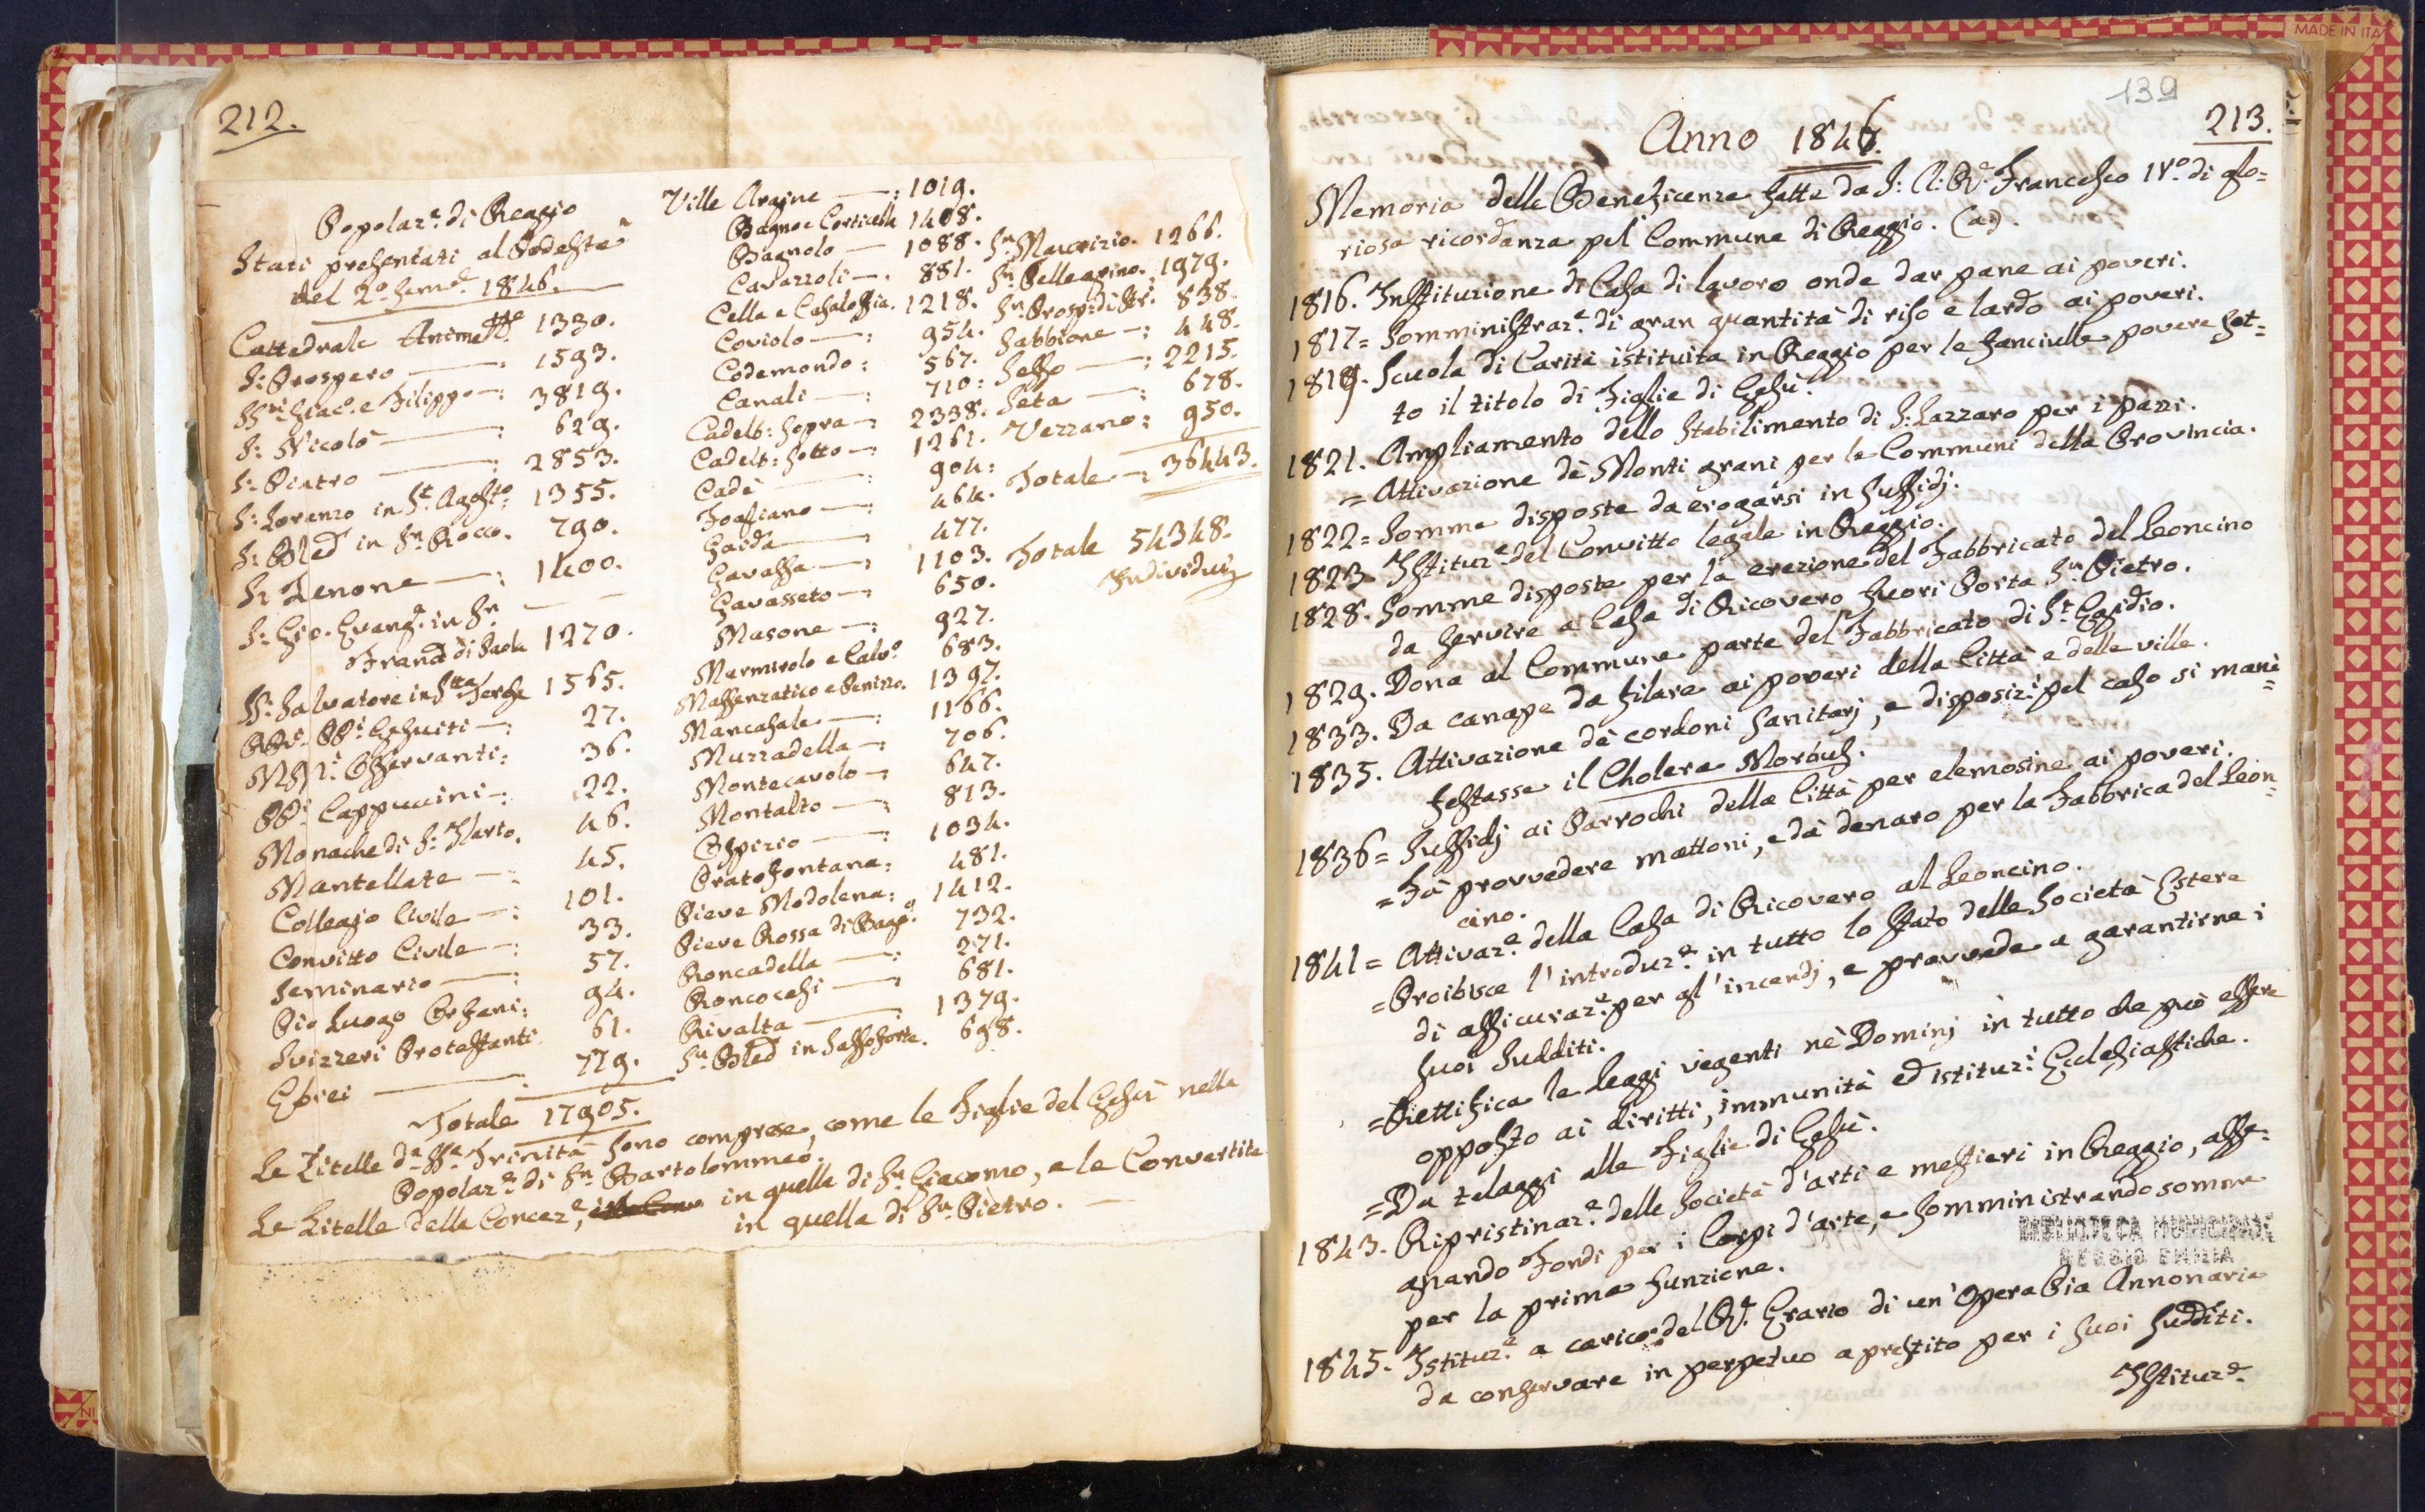 212.
Popolaz.e di Reggio
Stati presentati al Podestà
del 2.o Sem.e 1846.
Cattedrale Anime 1330.
S: Prospero — : 1593.
SS.ri Giac.o e Filippo — : 3819.
S: Nicolò — : 629.
S: Pietro — : 2853.
S: Lorenzo in S.t Agost.o 1355.
S: Bled in S.n Rocco. 790.
S: Zenone — : 1400.
S: Gio. Evang. in S.n
Franc. di Paola 1270.
S: Salvatore in S.ta Teresa 1565.
RR. PP.i Gesuiti — : 27.
M. Osservanti : 36.
PP.i Cappuccini — : 22.
Monache di S: Ilario. 46.
Mantellate — : 45.
Collegio Civile — : 101.
Convitto Civile — : 33.
Seminario — : 57.
Pio Luogo Orfani : 94.
Svizzeri Protestanti 61.
Ebrei — : 779.
Totale 17905.
Ville Argine — : 1019.
Bagno e Corticella 1408.
Bagnolo — 1088.
Cavazzoli — . 881.
Cella e Casaloffia. 1218.
Coviolo — : 954.
Codemondo : 567.
Canali — : 710 :
Cadelb: sopra — : 2338.
Cadelb: sotto — : 1261.
Cadè — : 904 :
Fogliano — : 464.
Gaida — : 477.
Gavassa — : 1103.
Gavasseto — : 650.
Masone — : 927.
Marmirolo e Calv.o 683.
Massenzatico e Penizzo. 1397.
Mancasale — : 1166.
Muzzadella — : 706.
Montecavolo — : 647.
Montalto — : 813.
Ospizio — : 1034.
Pratofontana : 481.
Pieve Modolena : 1412.
Pieve Rossa di Bagn.o 732.
Roncadella — : 271.
Roncocesi — : 681.
Rivalta — : 1379.
S.n Bled in Sassoforte. 698.
S.n Maurizio. 1266.
S.n Pellegrino. 1979.
S.n Prosp: di Str.i 838.
Sabbione — : 448.
Sesso — : 2215.
Seta — : 678.
Vezzano : 950.
Totale — : 36443.
Totale 54348.
Individui
Le Zitelle d.a SS.a Trinità sono comprese, come le Figlie del Gesù nella
Popolaz.e di S.n Bartolommeo.
Le Zitelle della Concez.e, in quella di S.n Giacomo, e le Convertite
in quella di S.n Pietro. —
139
213.
Anno 1846.
Memoria delle Beneficenze fatte da S: A: R. Francesco IV.o di glo=
riosa ricordanza pel Commune di Reggio. (a).
1816. Instituzione di Casa di lavoro onde dar pane ai poveri.
1817= Somministraz.e di gran quantità di riso e lardo ai poveri.
1819. Scuola di Carità istituita in Reggio per le fanciulle povere sot=
to il titolo di Figlie di Gesù.
1821. Ampliamento dello Stabilimento di S: Lazzaro per i pazzi.
= Attivazione de' Monti grani per le Communi della Provincia.
1822= Somme disposte da erogarsi in sussidj.
1823. Istituz.e del Convitto legale in Reggio.
1828. Somme disposte per la erezione del Fabbricato del Leoncino
da servire a Casa di Ricovero fuori Porta S.n Pietro.
1829. Dona al Commune parte del Fabbricato di S.t Egidio.
1833. Da canape da filare ai poveri della Città e delle ville.
1835. Attivazione de' cordoni sanitarj, e disposiz.i pel caso si mani=
festasse il Cholera Morbus.
1836= Sussidj ai Parrochi della Città per elemosine ai poveri.
= Fà provvedere mattoni, e dà denaro per la Fabbrica del Leon=
cino.
1841= Attivaz.e della Casa di Ricovero al Leoncino.
= Proibisce l'introduz.e in tutto lo Stato delle Società Estere
di assicuraz.e per gl'incendj, e provvede a garantirne i
suoi Sudditi.
= Rettifica le Leggi vegenti ne' Dominj in tutto che può essere
opposto ai diritti, immunità ed istituz.i Ecclesiastiche.
= Da telaggi alle Figlie di Gesù.
1843. Ripristinaz.e delle Società d'arti e mestieri in Reggio, asse=
gnando Fondi per i Corpi d'arte, e somministrando somme
per la prima funzione.
1845. Istituz.e a carico del R. Erario di un'Opera Pia Annonaria
da conservare in perpetuo a prestito per i suoi Sudditi.
Istituz.e
BIBLIOTECA MUNICIPALE
REGGIO EMILIA
MADE IN ITA